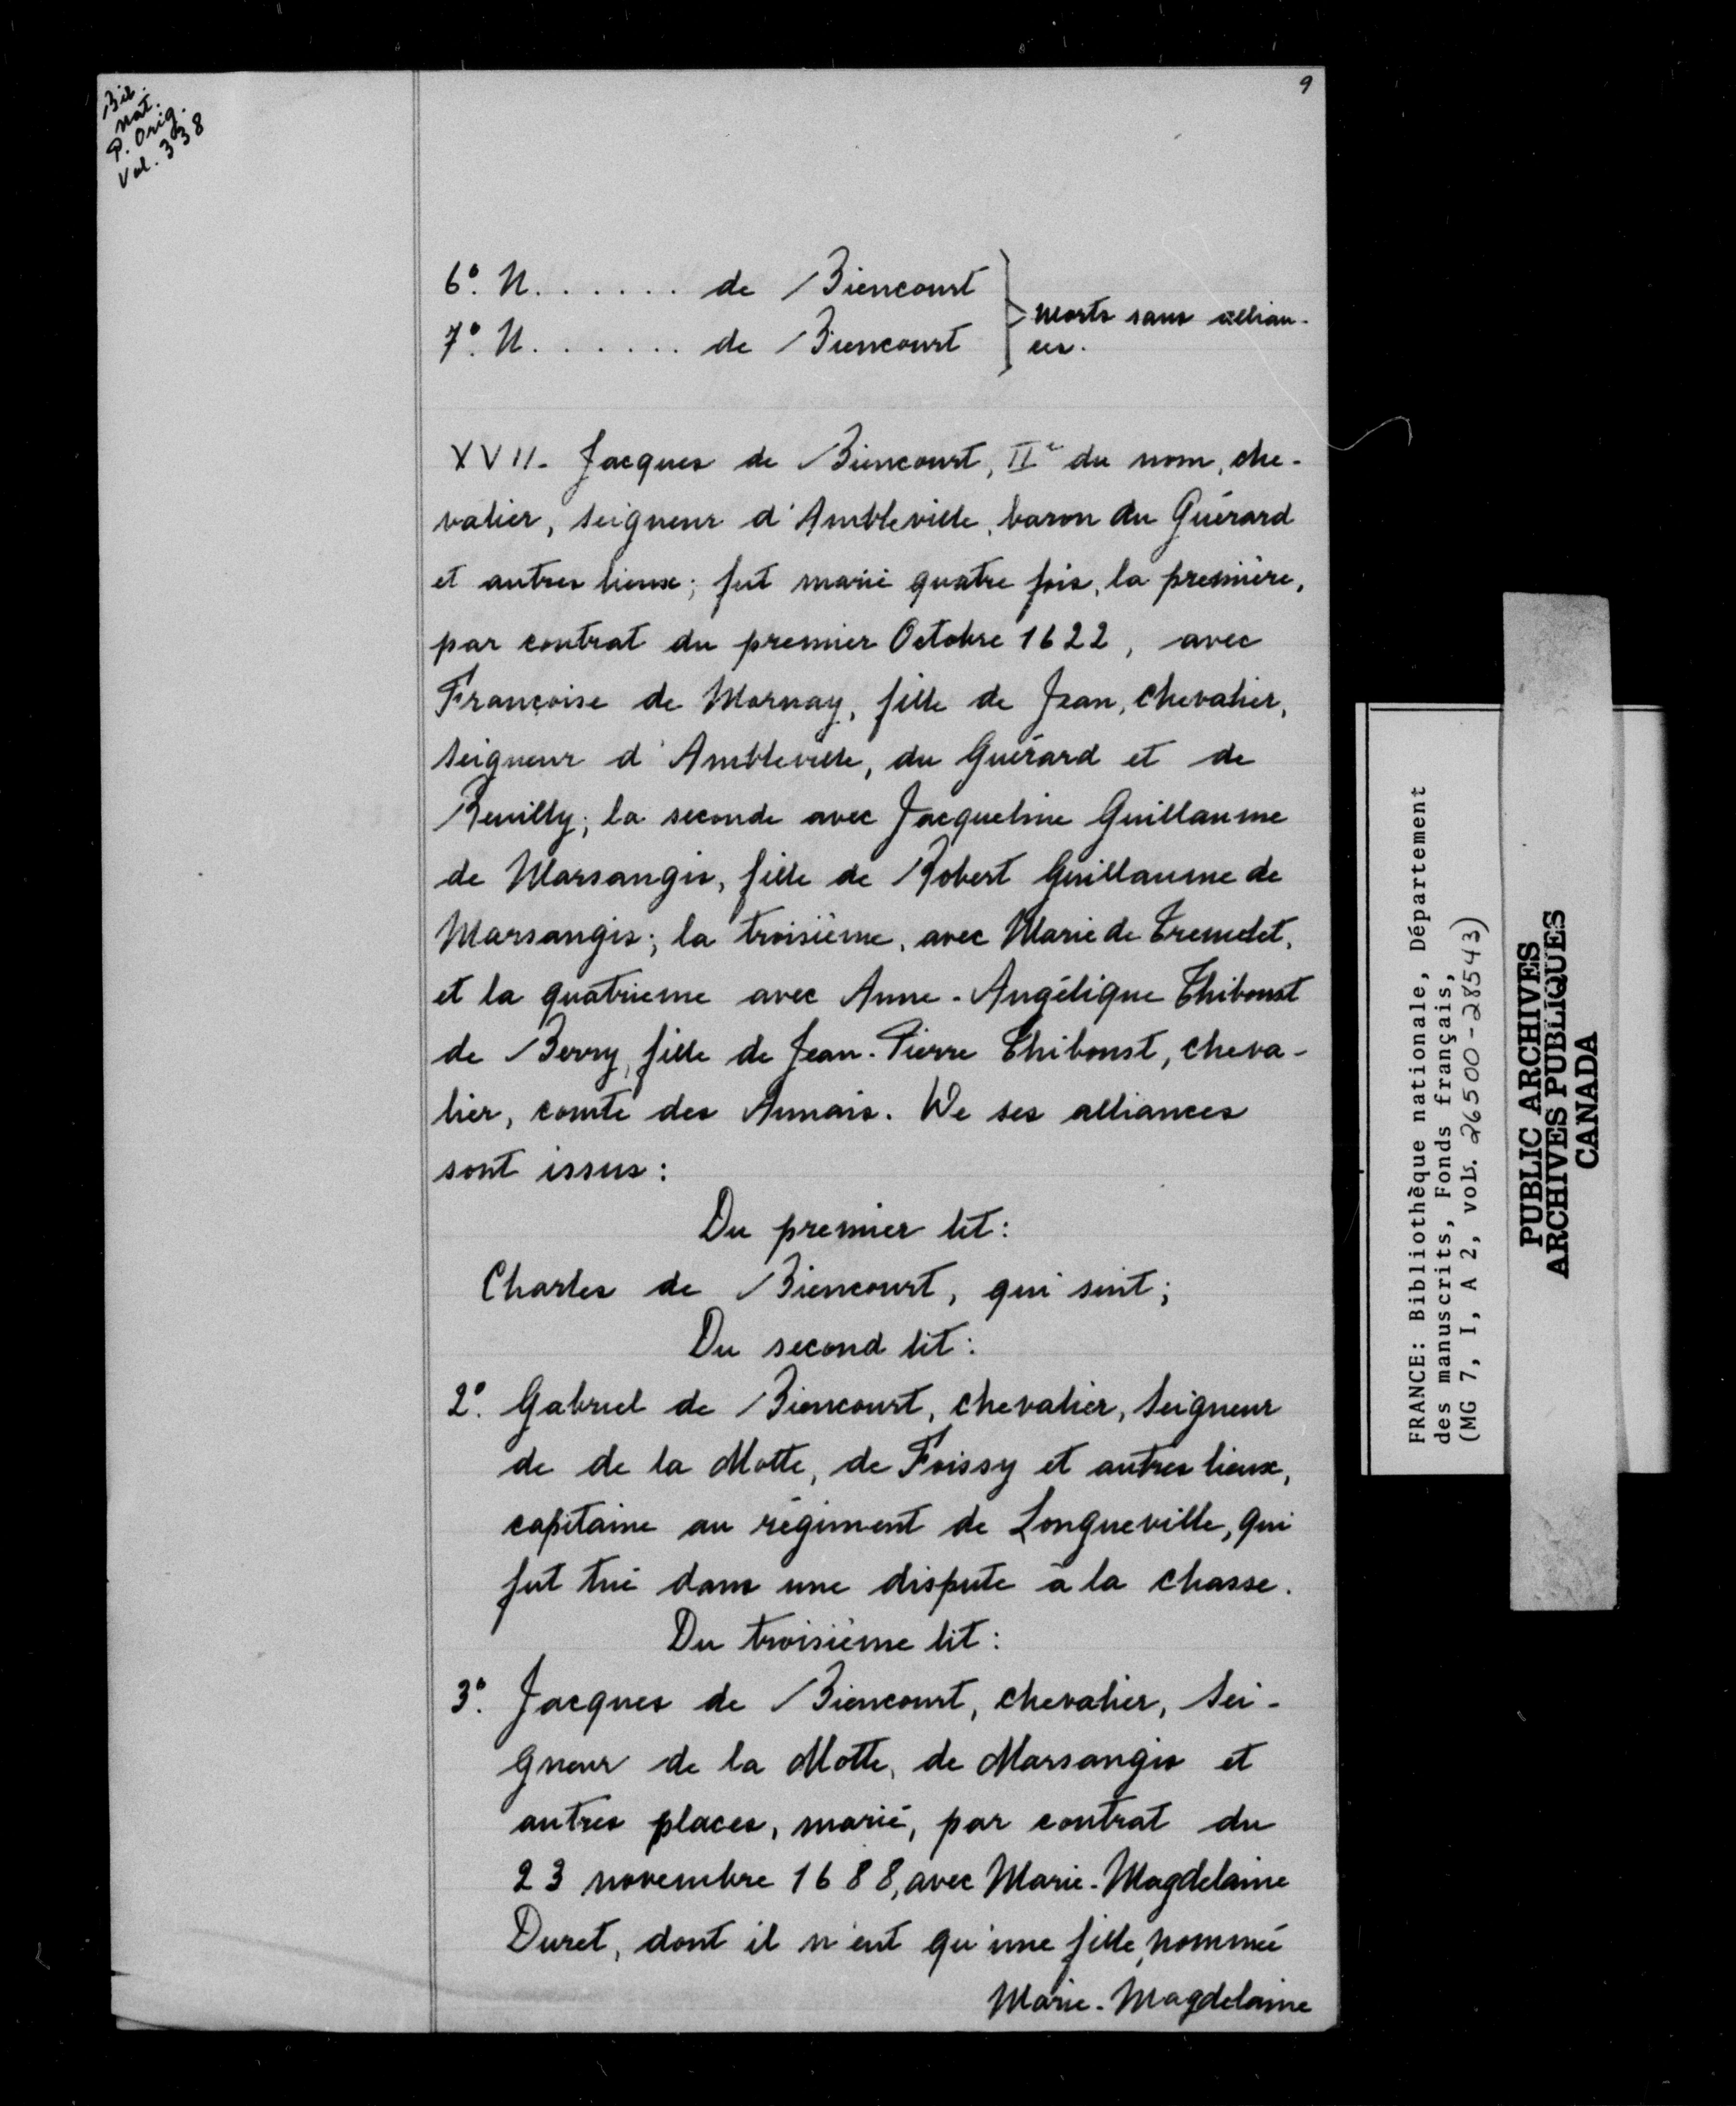 9
Bib.
nat.
P. Orig.
Vol. 338
6° N. . . . . . . de Biencourt } Morts sans allian-
7° N. . . . . . . de Biencourt } ces.
XVII. Jacques de Biencourt, IIe du nom, che-
valier, seigneur d'Ambleville, baron du Guérard
et autres lieux; fut marié quatre fois, la première,
par contrat du premier Octobre 1622, avec
Françoise de Mornay, fille de Jean, chevalier,
seigneur d'Ambleville, du Guérard et de
Reuilly; la seconde avec Jacqueline Guillaume
de Marsangis, fille de Robert Guillaume de
Marsangis; la troisième, avec Marie de Tremelet,
et la quatrième avec Anne-Angélique Thiboust
de Berry, fille de Jean-Pierre Thiboust, cheva-
lier, comte des Aunais. De ses alliances
sont issus:
Du premier lit:
Charles de Biencourt, qui suit;
Du second lit:
2° Gabriel de Biencourt, chevalier, seigneur
de de la Motte, de Foissy et autres lieux,
capitaine au régiment de Longueville, qui
fut tué dans une dispute à la chasse.
Du troisième lit:
3° Jacques de Biencourt, chevalier, sei-
gneur de la Motte, de Marsangis et
autres places, marié, par contrat du
23 novembre 1688, avec Marie-Magdelaine
Duret, dont il n'eut qu'une fille, nommée
Marie-Magdelaine
FRANCE: Bibliothèque nationale, Département
des manuscrits, Fonds français,
(MG 7, I, A 2, vols. 26500-28543)
PUBLIC ARCHIVES
ARCHIVES PUBLIQUES
CANADA